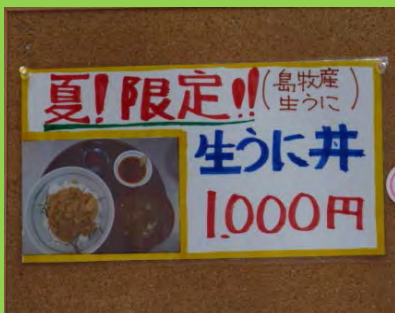 夏!限定!!(島牧産生うに)
生うに丼
1.000円